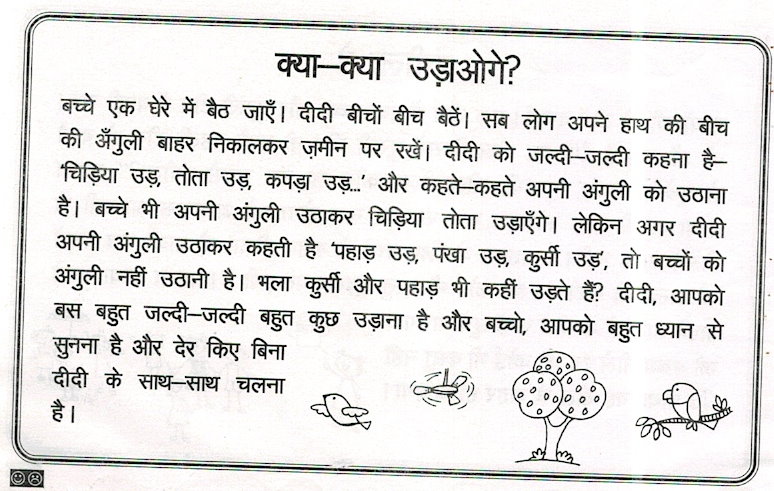 क्या–क्या उड़ाओगे?
बच्चे एक घेरे में बैठ जाएँ। दीदी बीचों बीच बैठें। सब लोग अपने हाथ की बीच
की अँगुली बाहर निकालकर ज़मीन पर रखें। दीदी को जल्दी–जल्दी कहना है–
‘चिड़िया उड़, तोता उड़, कपड़ा उड़...’ और कहते–कहते अपनी अंगुली को उठाना
है। बच्चे भी अपनी अंगुली उठाकर चिड़िया तोता उड़ाएँगे। लेकिन अगर दीदी
अपनी अंगुली उठाकर कहती है ‘पहाड़ उड़, पंखा उड़, कुर्सी उड़’, तो बच्चों को
अंगुली नहीं उठानी है। भला कुर्सी और पहाड़ भी कहीं उड़ते हैं? दीदी, आपको
बस बहुत जल्दी–जल्दी बहुत कुछ उड़ाना है और बच्चो, आपको बहुत ध्यान से
सुनना है और देर किए बिना
दीदी के साथ–साथ चलना
है।